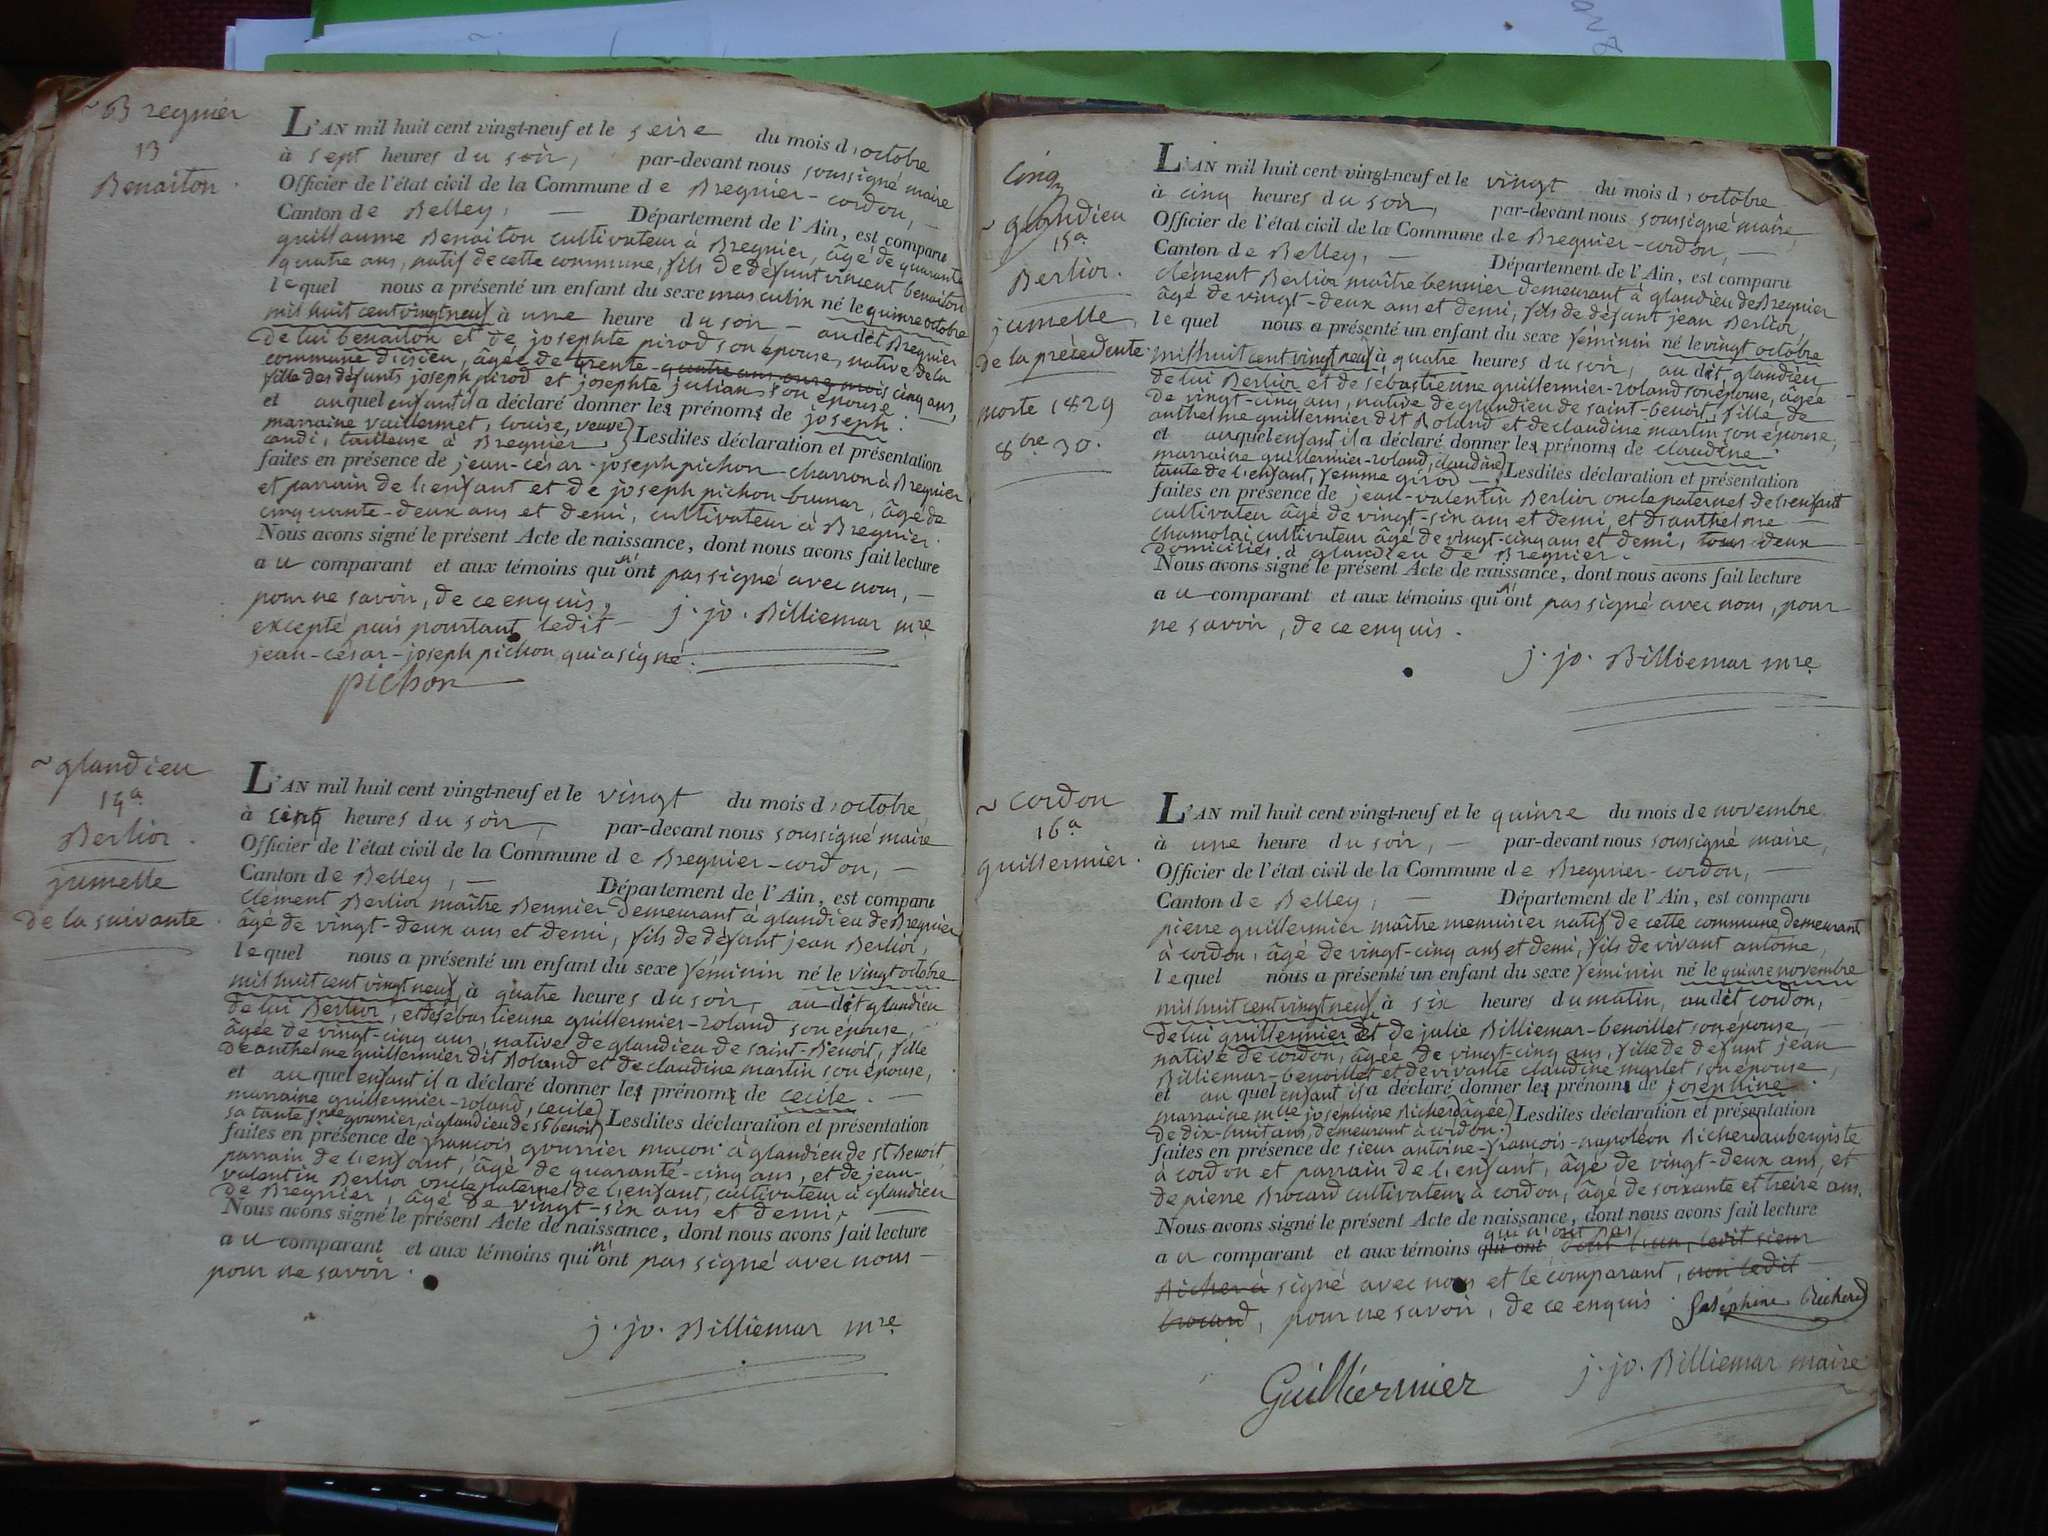 ~ Bregnier
13
Benaiton.
L'AN mil huit cent vingt-neuf et le seize du mois d'octobre
à sept heures du soir, par-devant nous soussigné maire
Officier de l'état civil de la Commune de Bregnier-cordon,
Canton de Belley, Département de l'Ain, est comparu
guillaume Benaiton cultivateur à Bregnier, âgé de quarante
quatre ans, natif de cette commune, fils de défunt vincent benaiton
lequel nous a présenté un enfant du sexe masculin né le quinze octobre
mil huit cent vingt neuf à une heure du soir au dit Bregnier
de lui benaiton et de josephte pirod son épouse, native de la
commune d'izieu, âgée de trente-quatre ans onze mois cinq ans,
fille des défunts joseph pirod et josephte julian son épouse.
et auquel enfant il a déclaré donner les prénoms de joseph.
marraine vuillermet, louise, veuve
candi, tailleuse à Bregnier, Lesdites déclaration et présentation
faites en présence de jean-césar-joseph pichon charron à Bregnier
et parrain de l'enfant et de joseph pichon-bunar, âgé de
cinquante-deux ans et demi, cultivateur à Bregnier.
Nous avons signé le présent Acte de naissance, dont nous avons fait lecture
au comparant et aux témoins qui n'ont pas signé avec nous,
pour ne savoir, de ce enquis,
excepté puis pourtant ledit j. jo. Billiemar mre
jean-césar-joseph pichon qui a signé.
pichon
~ glandieu
14a
Berlior.
jumelle
de la suivante.
L'AN mil huit cent vingt-neuf et le vingt du mois d'octobre
à cinq heures du soir, par-devant nous soussigné maire
Officier de l'état civil de la Commune de Bregnier-cordon,
Canton de Belley, Département de l'Ain, est comparu
clément Berlior maître Bennier demeurant à glandieu de Bregnier
âgé de vingt-deux ans et demi, fils de défunt jean Berlior,
lequel nous a présenté un enfant du sexe féminin né le vingt octobre
mil huit cent vingt neuf, à quatre heures du soir, au dit glandieu
de lui Berlior, et de sébastienne guillermier-roland son épouse,
âgée de vingt-cinq ans, native de glandieu de saint-Benoit, fille
de anthelme guillermier dit Roland et de claudine martin son épouse,
et auquel enfant il a déclaré donner les prénoms de cecile.
marraine guillermier-roland, cecile
sa tante fme gourrier, à glandieu de st benoit Lesdites déclaration et présentation
faites en présence de françois gourrier maçon à glandieu de st Benoit,
parrain de l'enfant, âgé de quarante-cinq ans, et de jean-
valentin Berlior oncle paternel de l'enfant, cultivateur à glandieu
de Bregnier, âgé de vingt-six ans et demi,
Nous avons signé le présent Acte de naissance, dont nous avons fait lecture
au comparant et aux témoins qui n'ont pas signé avec nous
pour ne savoir.
j. jo. Billiemar mre
cinq
~ glandieu
15a
Berlior.
jumelle
de la précédente.
morte 1829
8bre 30.
L'AN mil huit cent vingt-neuf et le vingt du mois d'octobre
à cinq heures du soir, par-devant nous soussigné maire,
Officier de l'état civil de la Commune de Bregnier-cordon,
Canton de Belley, Département de l'Ain, est comparu
clément Berlior maître bennier demeurant à glandieu de Bregnier
âgé de vingt-deux ans et demi, fils de défunt jean Berlior,
lequel nous a présenté un enfant du sexe féminin né le vingt octobre
mil huit cent vingt neuf à quatre heures du soir, au dit glandieu
de lui Berlior et de sébastienne guillermier-roland son épouse, âgée
de vingt-cinq ans, native de glandieu de saint-benoit, fille de
anthelme guillermier dit Roland et de claudine martin son épouse,
et auquel enfant il a déclaré donner les prénoms de claudine.
marraine guillermier-roland, claudine
tante de l'enfant, femme girod Lesdites déclaration et présentation
faites en présence de jean-valentin Berlior oncle paternel de l'enfant
cultivateur âgé de vingt-six ans et demi, et d'anthelme
chamolai cultivateur âgé de vingt-cinq ans et demi, tous deux
domiciliés à glandieu de Bregnier.
Nous avons signé le présent Acte de naissance, dont nous avons fait lecture
au comparant et aux témoins qui n'ont pas signé avec nous, pour
ne savoir, de ce enquis.
j. jo. Billiemar mre
~ cordon
16a
guillermier.
L'AN mil huit cent vingt-neuf et le quinze du mois de novembre
à une heure du soir, par-devant nous soussigné maire,
Officier de l'état civil de la Commune de Bregnier-cordon,
Canton de Belley, Département de l'Ain, est comparu
pierre guillermier maître menuisier natif de cette commune demeurant
à cordon, âgé de vingt-cinq ans et demi, fils de vivant antoine,
lequel nous a présenté un enfant du sexe féminin né le quinze novembre
mil huit cent vingt neuf à six heures du matin, au dit cordon,
de lui guillermier et de julie Billiemar-benoillet son épouse,
native de cordon, âgée de vingt-cinq ans, fille de défunt jean
Billiemar-benoillet et de vivante claudine marlet son épouse,
et auquel enfant il a déclaré donner les prénoms de josephine.
marraine mlle josephine Richerd âgée
de dix-huit ans, demeurant à cordon. Lesdites déclaration et présentation
faites en présence de sieur antoine-françois-napoléon Richerd aubergiste
à cordon et parrain de l'enfant, âgé de vingt-deux ans, et
de pierre Brocard cultivateur à cordon, âgé de soixante et treize ans.
Nous avons signé le présent Acte de naissance, dont nous avons fait lecture
qui n'ont pas
au comparant et aux témoins qui ont dont l'un, ledit sieur
Richerd signé avec nous et le comparant, non ledit
brocard, pour ne savoir, de ce enquis. Joséphine Richerd
Guilliermier
j. jo. Billiemar maire